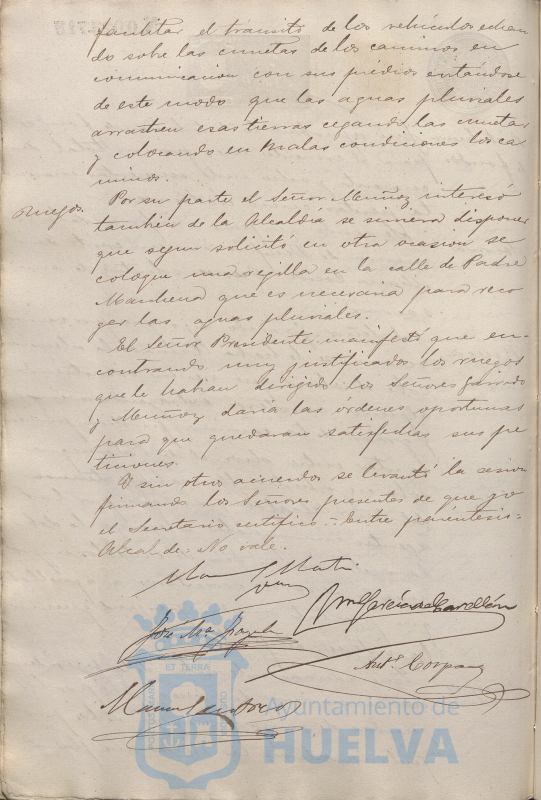 facilitar el tránsito de los vehículos echan
do sobre las cunetas de los caminos en
comunicacion con sus predios evitándose
de este modo que las aguas pluviales
arrastren esas tierras cegando las cunetas
y colocando en malas condiciones los ca
minos.
Ruegos.
Por su parte el Señor Muñoz interesó
tambien de la Alcaldía se sirviera disponer
que segun solicitó en otra ocasion se
coloque una regilla en la calle de Padre
Marchena que es necesaria para reco
ger las aguas pluviales.
El Señor Presidente manifestó que en-
contrando muy justificados los ruegos
que le habian dirigido los Señores Garrido
y Muñoz daria las órdenes oportunas
para que quedaran satisfechas sus pe
ticiones.
Y sin otros acuerdos se levantó la sesion
firmando los Señores presentes de que yo
el Secretario certifico.- Entre paréntesis=
Alcal de= No vale.
José Mª
Antº
Manuel
ET TERRA
Ayuntamiento de
HUELVA